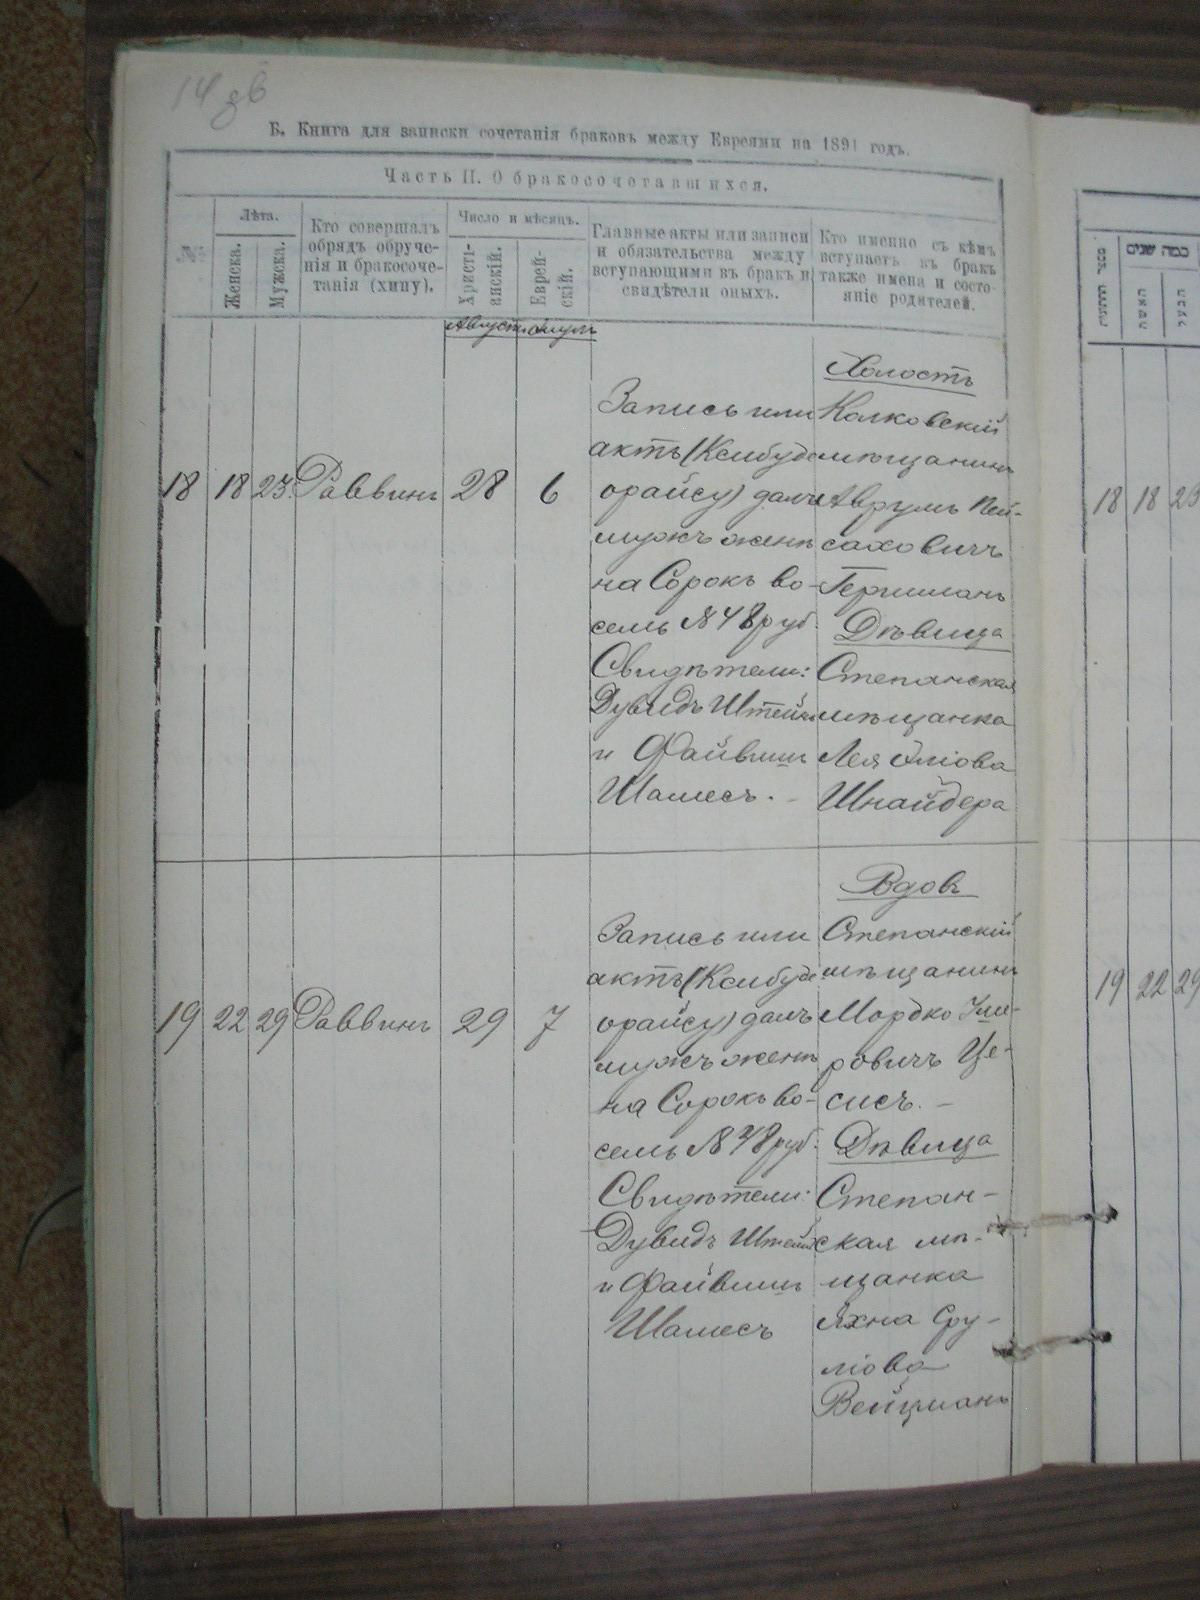 14 об
Б. Книга для записки сочетанія браковъ между Евреями на 1891 годъ.
Часть II. О бракосочетавшихся.
№
Лѣта.
Женска.
Мужска.
Кто совершалъ
обрядъ обруче-
нія и бракосоче-
танія (хипу).
Число и мѣсяцъ.
Христі-
анскій.
Еврей-
скій.
Главные акты или записи
и обязательства между
вступающими въ бракъ и
свидѣтели оныхъ.
Кто именно съ кѣмъ
вступаетъ въ бракъ
также имена и состо-
яніе родителей.
כמה שנים
Августа
18 18 23 Раввинъ 28 6
Запись или
актъ (Ксибуде
орайсу) далъ
мужъ женѣ
на Сорокъ во-
семь № 48 руб.
Свидѣтели:
Дувидъ Штейнъ
и Файвишъ
Шамесъ. -
Холостъ
Колковскій
мѣщанинъ
Аврумъ Пей-
саховичъ
Гершманъ
Дѣвица
Степанская
мѣщанка
Лея Эліова
Шнайдера
18 18 23
19 22 29 Раввинъ 29 7
Запись или
актъ (Ксибуде
орайсу) далъ
мужъ женѣ
на Сорокъ во-
семь № 48 руб.
Свидѣтели:
Дувидъ Штейнъ
и Файвишъ
Шамесъ
Вдовъ
Степанскій
мѣщанинъ
Мордко
ровичъ Це-
сисъ. -
Дѣвица
Степан-
ская мѣ-
щанка
Яхна Сру-
ліова
Вейцманъ
19 22 29